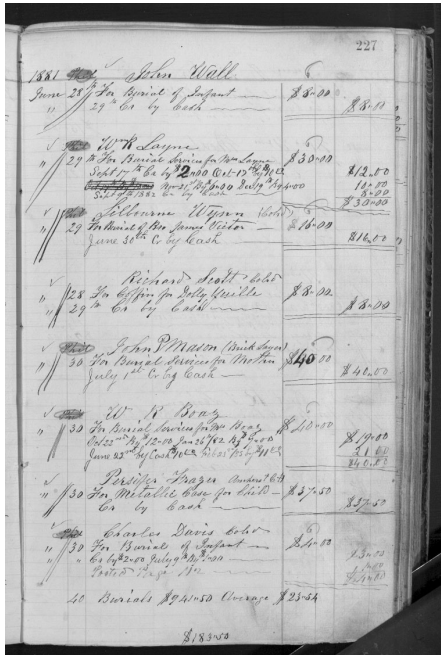 227
1881 John Wall
June 28 For Burial of Infant $8.00
" 29th Cr by Cash $8.00
Wm R Layne
" 29th For Burial Services for Mrs Layne $30.00
Sept 17th Cr by $2.00 Oct 17th By $10.00 $12.00
Nov 21st By $6.00 Dec 19th By 4.00 10.00
Sept 1882 Cr by Cash 8.00
$30.00
Wynn Cold
" 29 For Burial of Bro James $16.00
June 30th Cr by Cash $16.00
Richard Scott Cold
" 28 For Coffin for Dolly $8.00
" 29th Cr by Cash $8.00
John P Mason (Brick Layer)
" 30 For Burial Services for Mother $40.00
July 1st Cr by Cash $40.00
W R Boaz
" 30 For Burial Services for Mrs Boaz $40.00
Oct 22nd By $12.00 Jan 26th 82 By $ $19.00
June 23rd by Cash 21.00
$40.00
Persifer Frazer Amherst
" 30 For Metallic Case for Child $37.50
Cr by Cash $37.50
Charles Davis Cold
" 30 For Burial of Infant $4.00
" Cr by $ July 9th By
Page
$4.00
40 Burials $941.50 Average $23.54
$183.50